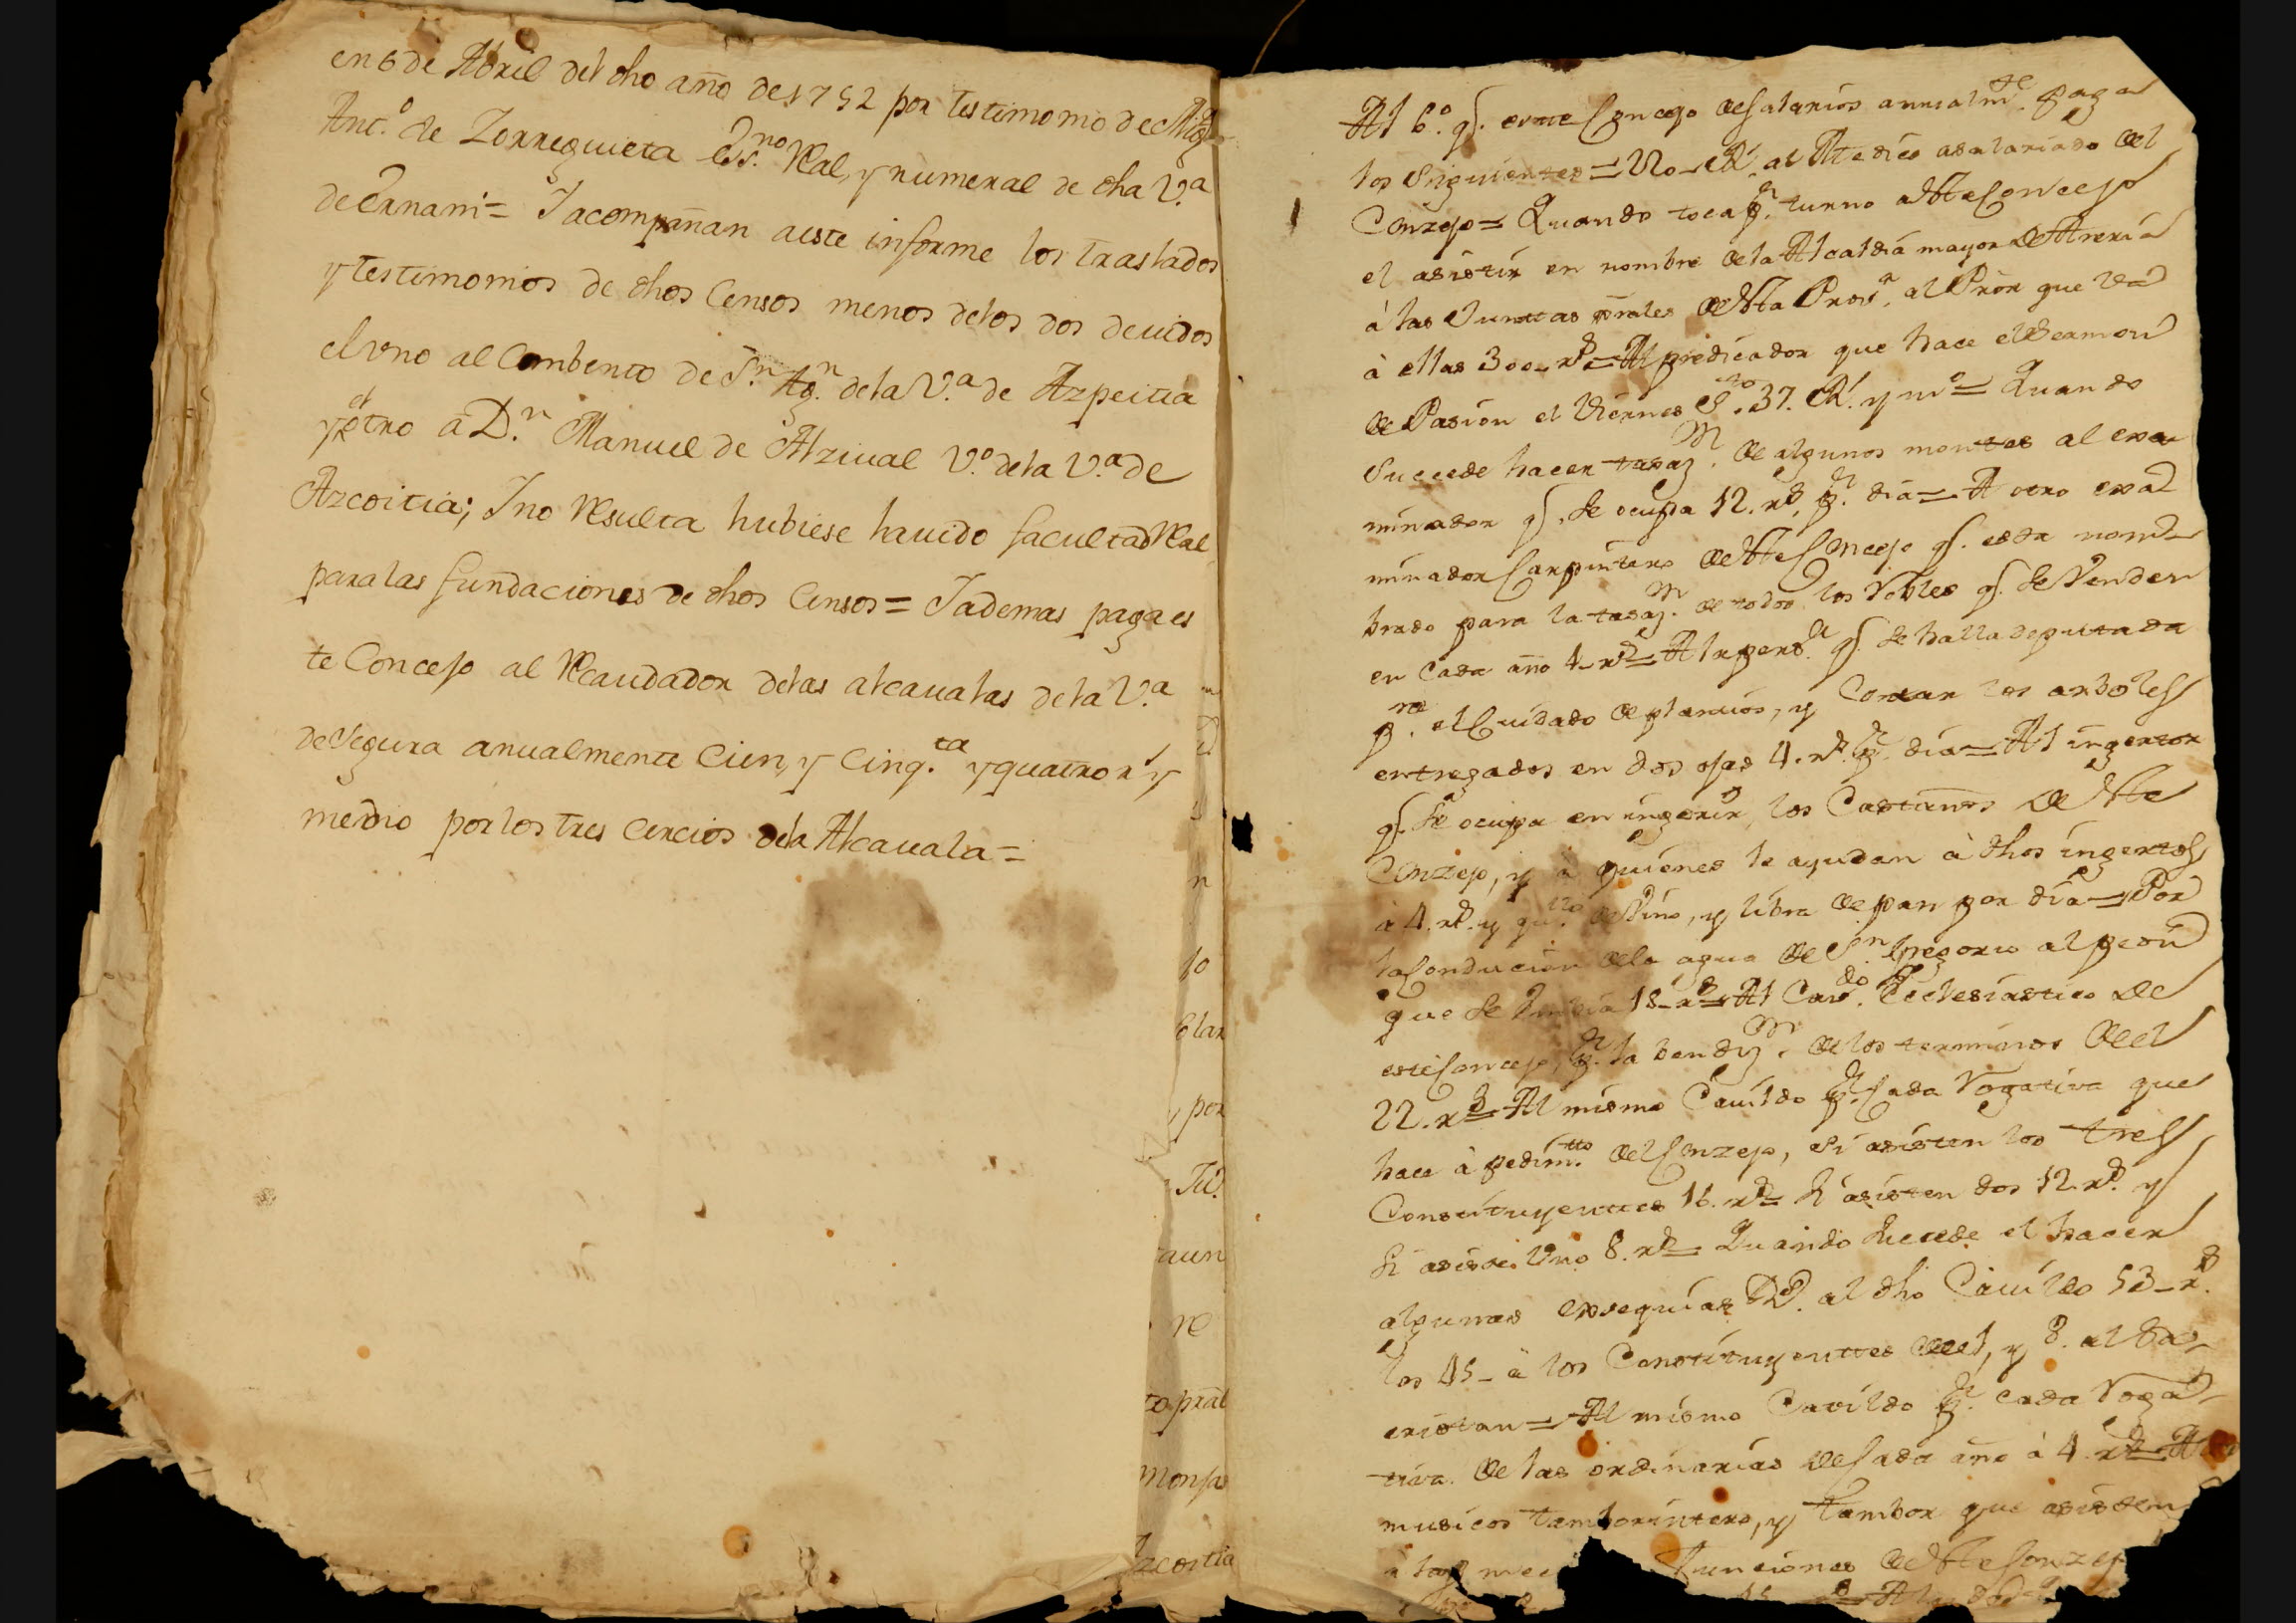 en 6 de Abril del dho año de 1752 por testimonio de Mig.
Ant.º de Zorreguieta Ess.no Real, y numeral de dha V.a
de Ernani = I acompañan a este informe los traslados
y testimonios de dhos Censos menos de los dos devidos
el vno al Combento de S.n Ag.n de la V.a de Azpeitia
y el otro a D.n Manuel de Alzival V.º de la V.a de
Azcoitia; I no Resulta hubiese havido facultad Real
para las fundaciones de dhos Censos = I ademas paga es
te Concejo al Recaudador de las alcavalas de la V.a
de Segura anualmente Cien, y Cinq.ta y quatro r.s y
medio por los tres Cercios de la Alcavala =
n
to
o lar
y por
aun
re
to pral
Monjas
Azcoitia
Al 6.º q. este Concejo de salarios annualm.te paga
los Siguientes = al Medico asalariado del
Conzejo = Quando toca p.r turno a este Concejo
el asistir en nombre de la Alcaldia mayor de Areria
à las Junttas grales de esta Prov.a al Prôr que va
à ellas 300_r.s = Al predicador que hace el Sermon
de Pasion el Viernes S.to 37. R.s y m.º = Quando
Succede hacer tasaz.n de algunos montes al exa
minador q. se ocupa 12. r.s p.r dia = A otro exa
minador Carpintero de este Concejo q. esta nom
brado para la tasaz.n de todos los Robles q. se Venden
en Cada año 4_r.s = A la pers.a q. se halla deputada
p.ra el Cuidado de plantios, y Contar los arboles
entregados en dos ojas 4. r.s p.r dia = Al ingertor
q. se ocupa en ingerir, los Castaños de este
Conzejo, y à quienes le ayudan à dhos ingertos
à 4. r.s y de Vino, y libra de pan por dia = Por
la Conducion de la agua de S.n Gregorio al peon
que se Imbia 18_r.s = Al Cav.do Ecclesiastico de
este Concejo, p.r la bendiz.n de los terminos de el
22. r.s = Al mismo Cavildo p.r Cada Rogativa que
hace à pedim.tto del Conzejo, si asisten los tres
Constituyenttes 16. r.s = Si asisten dos 12. r.s y
Si asiste Uno 8. r.s = Quando Sucede el hacer
algunas exsequias R.s al dho Cavildo 53_r.s
los 45_ à los Constituyenttes de el, y 8. al Sa
cristan = Al mismo Cavildo p.r cada Roga
tiva de las ordinarias de Cada año à 4. r.s = A
musicos tamborintero, y tambor que asisten
à las funciones de este Conzejo